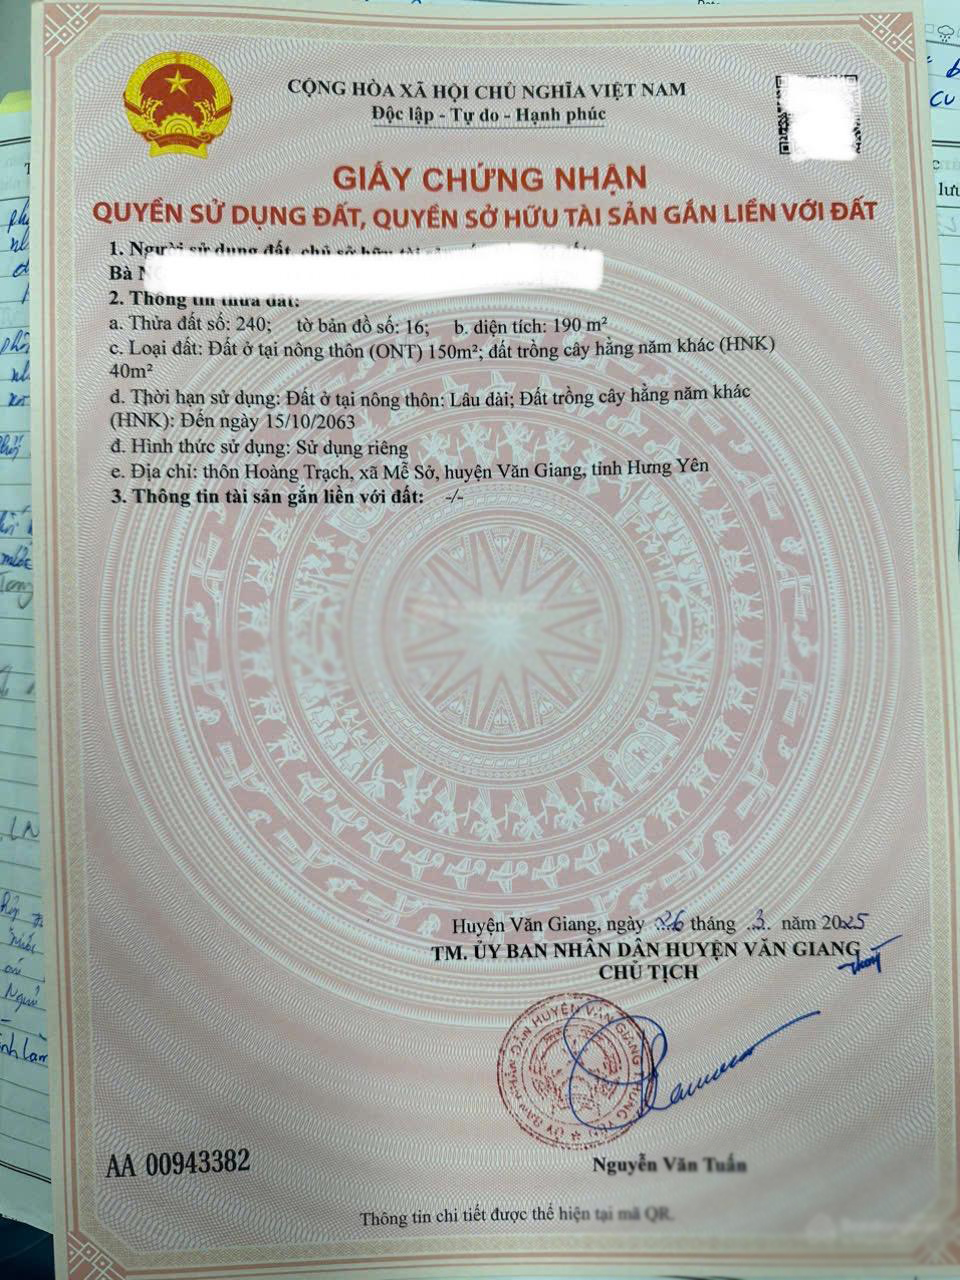 CỘNG HÒA XÃ HỘI CHỦ NGHĨA VIỆT NAM
Độc lập - Tự do - Hạnh phúc
GIẤY CHỨNG NHẬN
QUYỀN SỬ DỤNG ĐẤT, QUYỀN SỞ HỮU TÀI SẢN GẮN LIỀN VỚI ĐẤT
1. Người sử dụng đất, chủ sở hữu tài sản
Bà
2. Thông tin thửa đất:
a. Thửa đất số: 240; tờ bản đồ số: 16; b. diện tích: 190 m²
c. Loại đất: Đất ở tại nông thôn (ONT) 150m²; đất trồng cây hằng năm khác (HNK)
40m²
d. Thời hạn sử dụng: Đất ở tại nông thôn: Lâu dài; Đất trồng cây hằng năm khác
(HNK): Đến ngày 15/10/2063
đ. Hình thức sử dụng: Sử dụng riêng
e. Địa chỉ: thôn Hoàng Trạch, xã Mễ Sở, huyện Văn Giang, tỉnh Hưng Yên
3. Thông tin tài sản gắn liền với đất: -/-
Huyện Văn Giang, ngày 26 tháng .3. năm 2025
TM. ỦY BAN NHÂN DÂN HUYỆN VĂN GIANG
CHỦ TỊCH
Nguyễn Văn Tuấn
AA 00943382
Thông tin chi tiết được thể hiện tại mã QR.